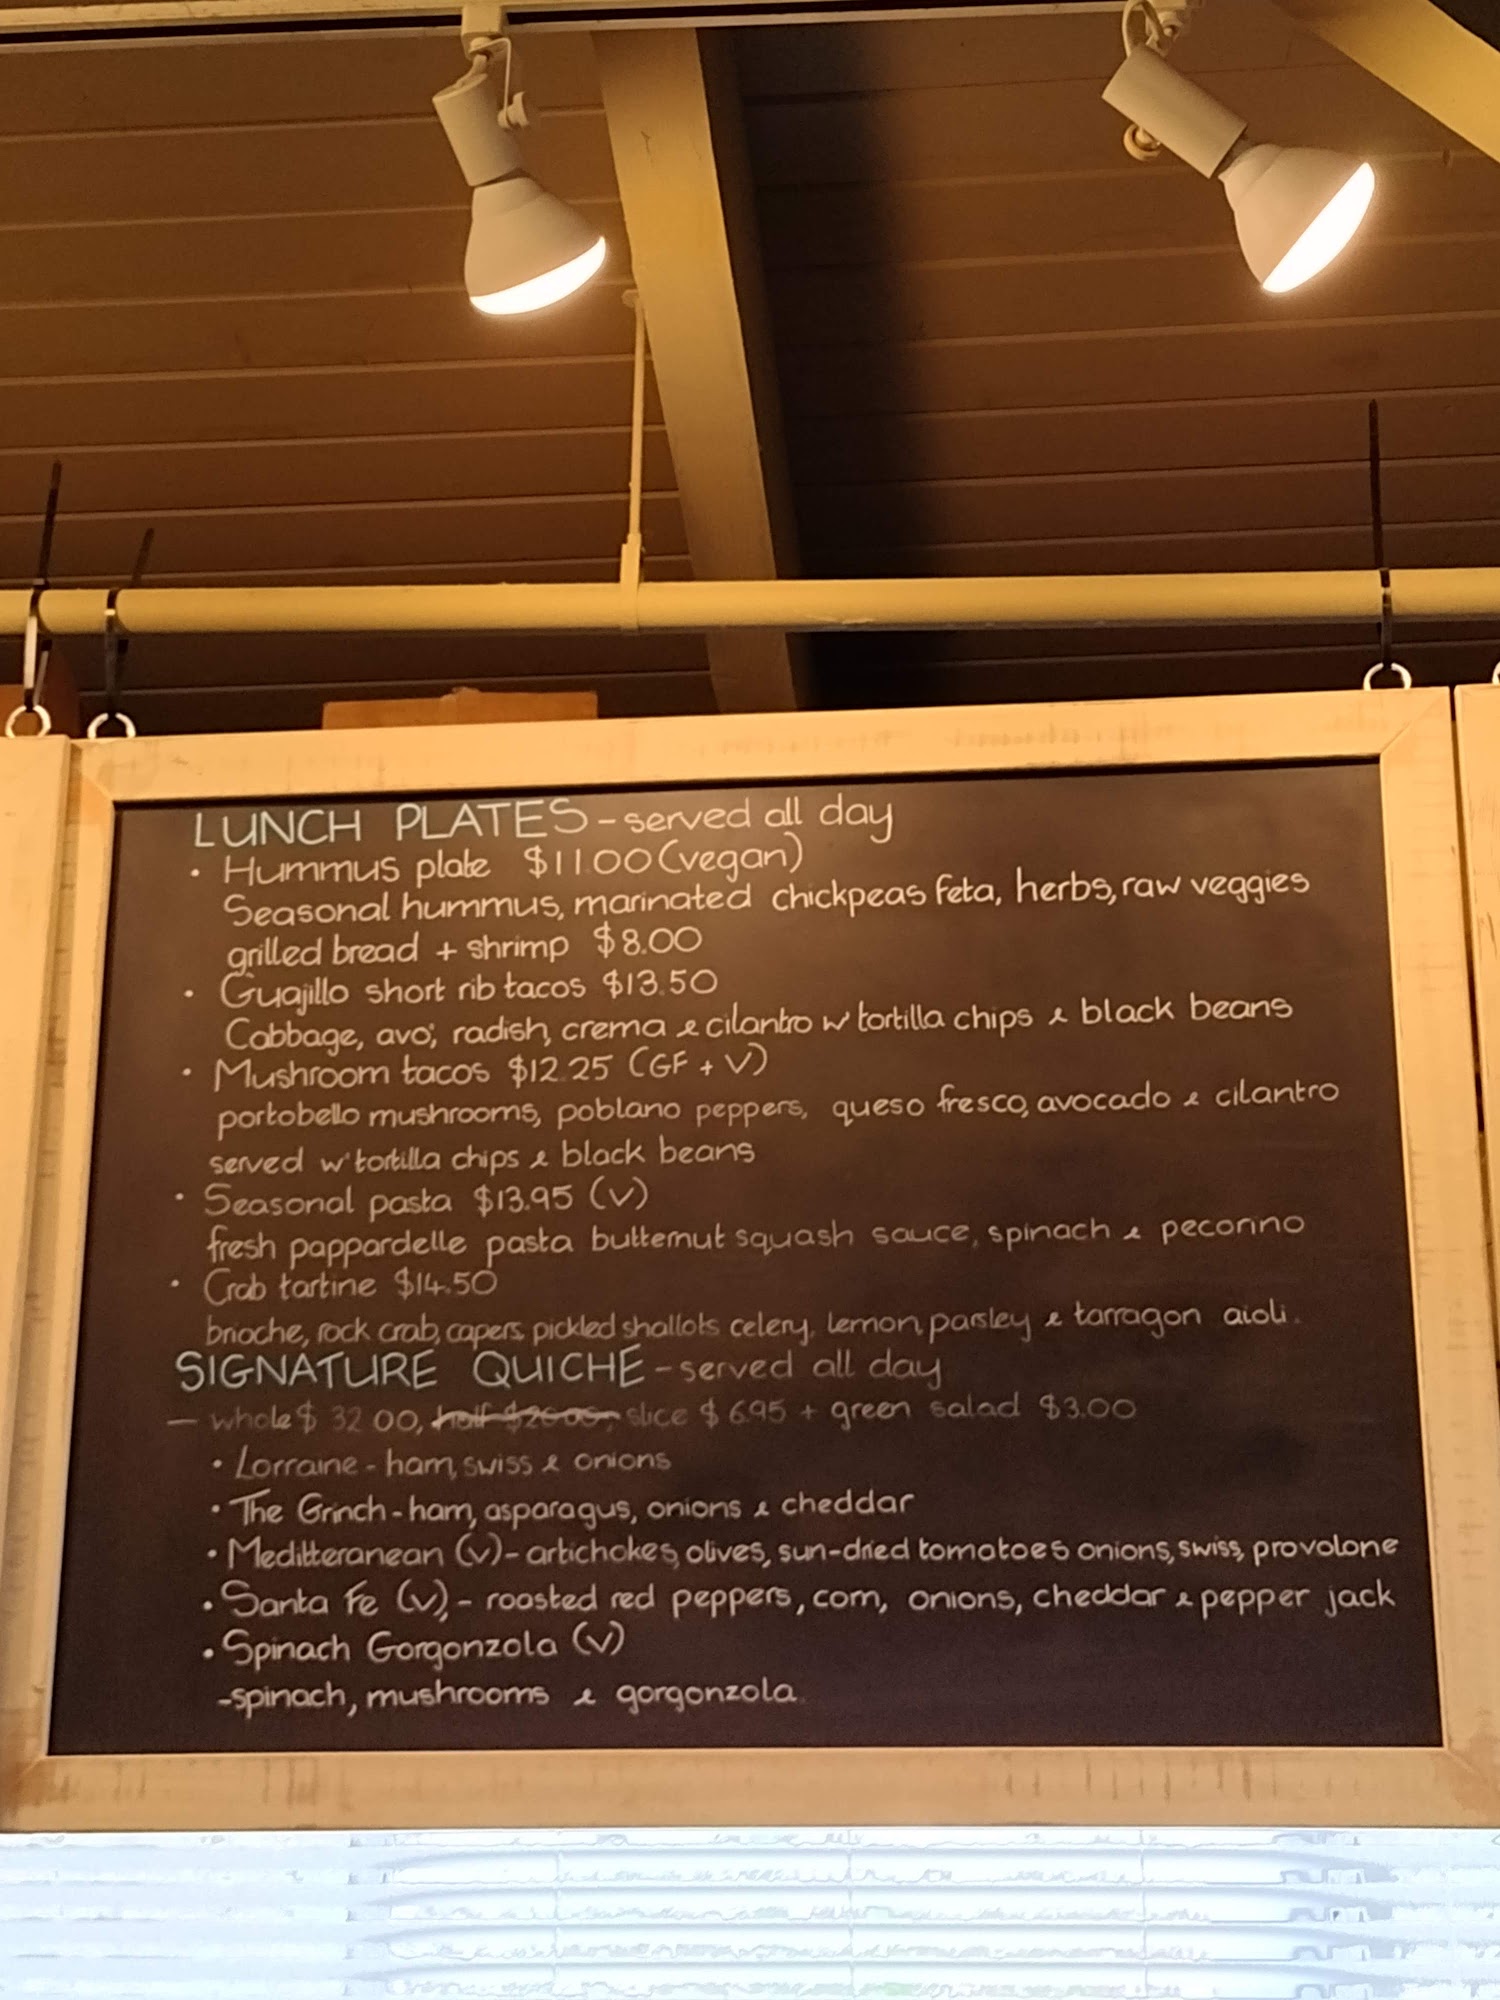 LUNCH PLATES - served all day
• Hummus plate $11.00 (vegan)
Seasonal hummus, marinated chickpeas feta, herbs, raw veggies
grilled bread + shrimp $8.00
• Guajillo short rib tacos $13.50
Cabbage, avo', radish, crema & cilantro w' tortilla chips & black beans
• Mushroom tacos $12.25 (GF + V)
portobello mushrooms, poblano peppers, queso fresco, avocado & cilantro
served w' tortilla chips & black beans
• Seasonal pasta $13.95 (V)
fresh pappardelle pasta butternut squash sauce, spinach & pecorino
• Crab tartine $14.50
brioche, rock crab, capers, pickled shallots celery, lemon, parsley & tarragon aioli.
SIGNATURE QUICHE - served all day
— whole $ 32.00, half $20.00, slice $ 6.95 + green salad $3.00
• Lorraine - ham, swiss & onions
• The Grinch - ham, asparagus, onions & cheddar
• Meditteranean (v) - artichokes, olives, sun-dried tomatoes onions, swiss, provolone
• Santa Fe (v), - roasted red peppers, corn, onions, cheddar & pepper jack
• Spinach Gorgonzola (v)
- spinach, mushrooms & gorgonzola.